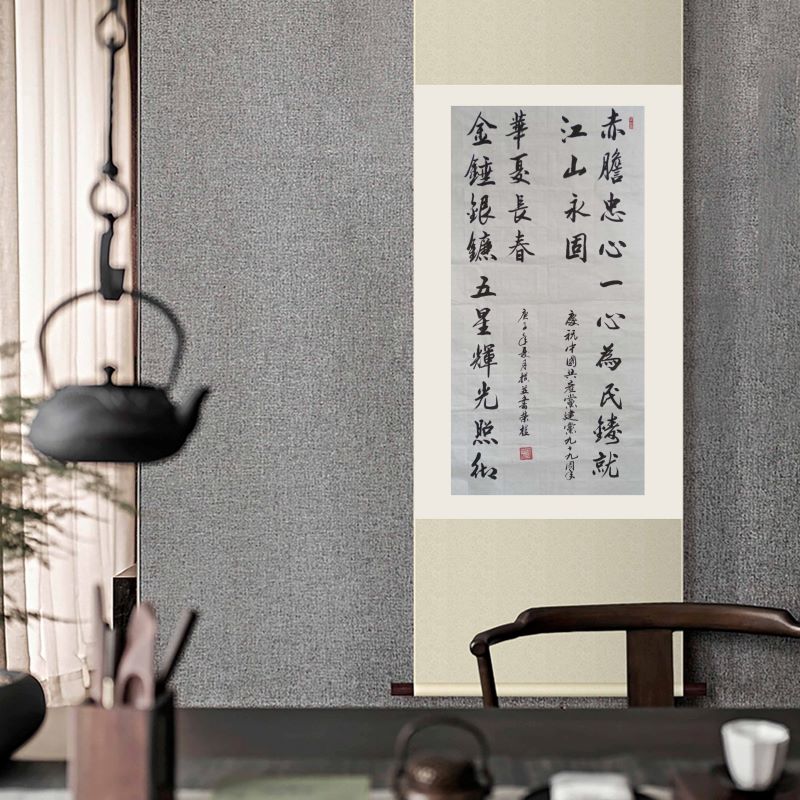 赤膽忠心一心為民鑄就
江山永固
慶祝中國共產黨建黨九十九周年
金錘銀鐮五星輝光照彻
華夏長春
庚子年夏月撰並書